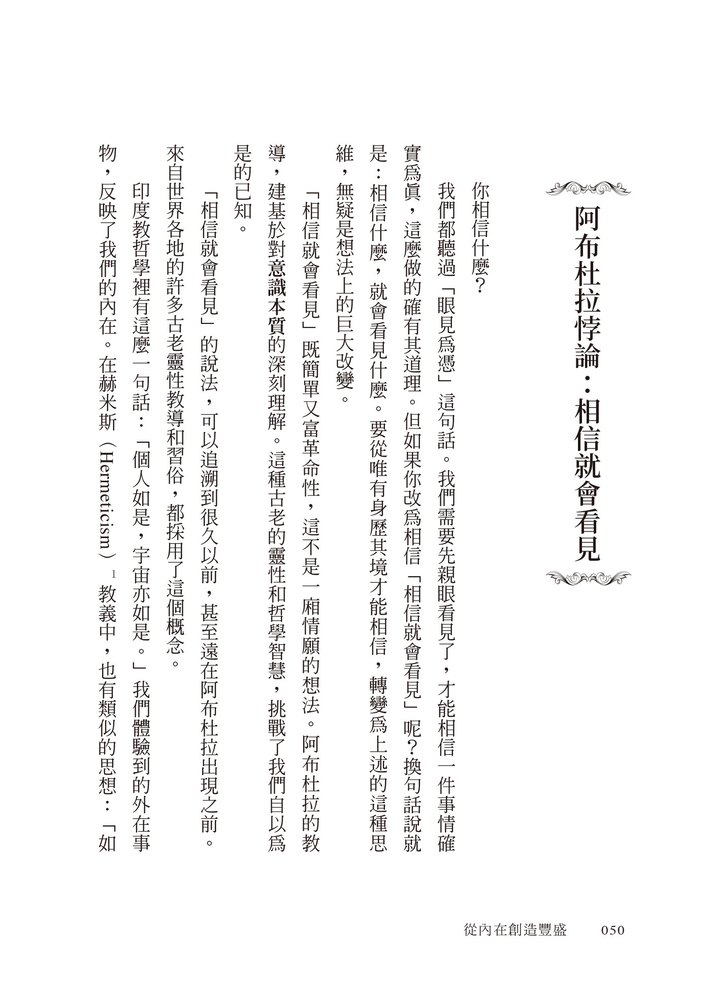 阿布杜拉悖論：相信就會看見
你相信什麼？
我們都聽過「眼見為憑」這句話。我們需要先親眼看見了，才能相信一件事情確
實為真，這麼做的確有其道理。但如果你改為相信「相信就會看見」呢？換句話說就
是：相信什麼，就會看見什麼。要從唯有身歷其境才能相信，轉變為上述的這種思
維，無疑是想法上的巨大改變。
「相信就會看見」既簡單又富革命性，這不是一廂情願的想法。阿布杜拉的教
導，建基於對意識本質的深刻理解。這種古老的靈性和哲學智慧，挑戰了我們自以為
是的已知。
「相信就會看見」的說法，可以追溯到很久以前，甚至遠在阿布杜拉出現之前。
來自世界各地的許多古老靈性教導和習俗，都採用了這個概念。
印度教哲學裡有這麼一句話：「個人如是，宇宙亦如是。」我們體驗到的外在事
物，反映了我們的內在。在赫米斯（Hermeticism）1教義中，也有類似的思想：「如
從內在創造豐盛 050